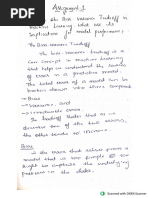 Assignment 1
the Bias Variance Tradeoff in
Machine Learning what are its
Implications for model performance?
The Bias Variance Tradeoff
The Bias Variance Tradeoff is a
key concept in machine learning
that helps us understand the sources
of error in a predictive model.
The total error of a model can be
broken down into three components
Bias
Variance, and
Irreducible error.
The tradeoff states that as we
decrease one of the two errors,
the other tends to increase.
Bias
the error that arises from a
model that is too simple to
capture the underlying
patterns in the data.
Scanned with OKEN Scanner